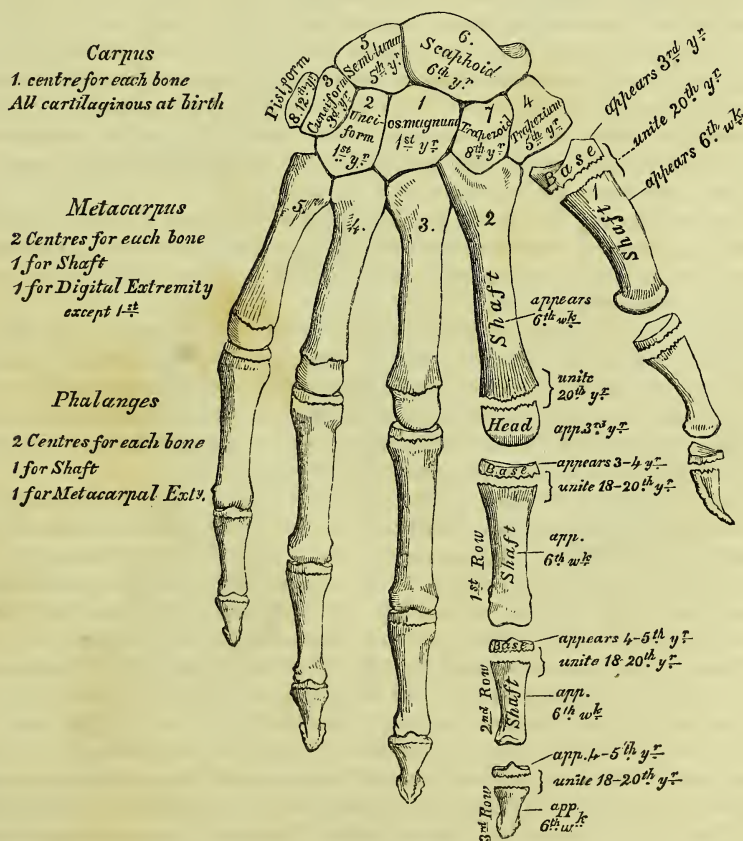 Carpus
1. centre for each bone
All cartilaginous at birth
Metacarpus
2 Centres for each bone
1 for Shaft
1 for Digital Extremity
except 1st
Phalanges
2 Centres for each bone
1 for Shaft
1 for Metacarpal Exty.
Pisiform
8.12th yr
3
Cuneiform
3d yr
5
Semi-lunum
5th yr
6.
Scaphoid
6th yr
2
Unci-
form
1st
yr
1
os.magnum
1st yr
7
Trapezoid
8th yr
4
Trapezium
5th yr
appears 3rd yr
unite 20th yr
appears 6th wk
Base
1
Shaft
5.
4.
3.
2
Shaft
appears
6th wk
unite
20th yr
Head
app. 3rd yr
Base
appears 3-4 yr
unite 18-20th yr
1st Row
Shaft
app.
6th wk
Base
appears 4-5th yr
unite 18-20th yr
2nd Row
Shaft
app.
6th wk
app. 4-5th yr
unite 18-20th yr
3rd Row
app.
6th wk